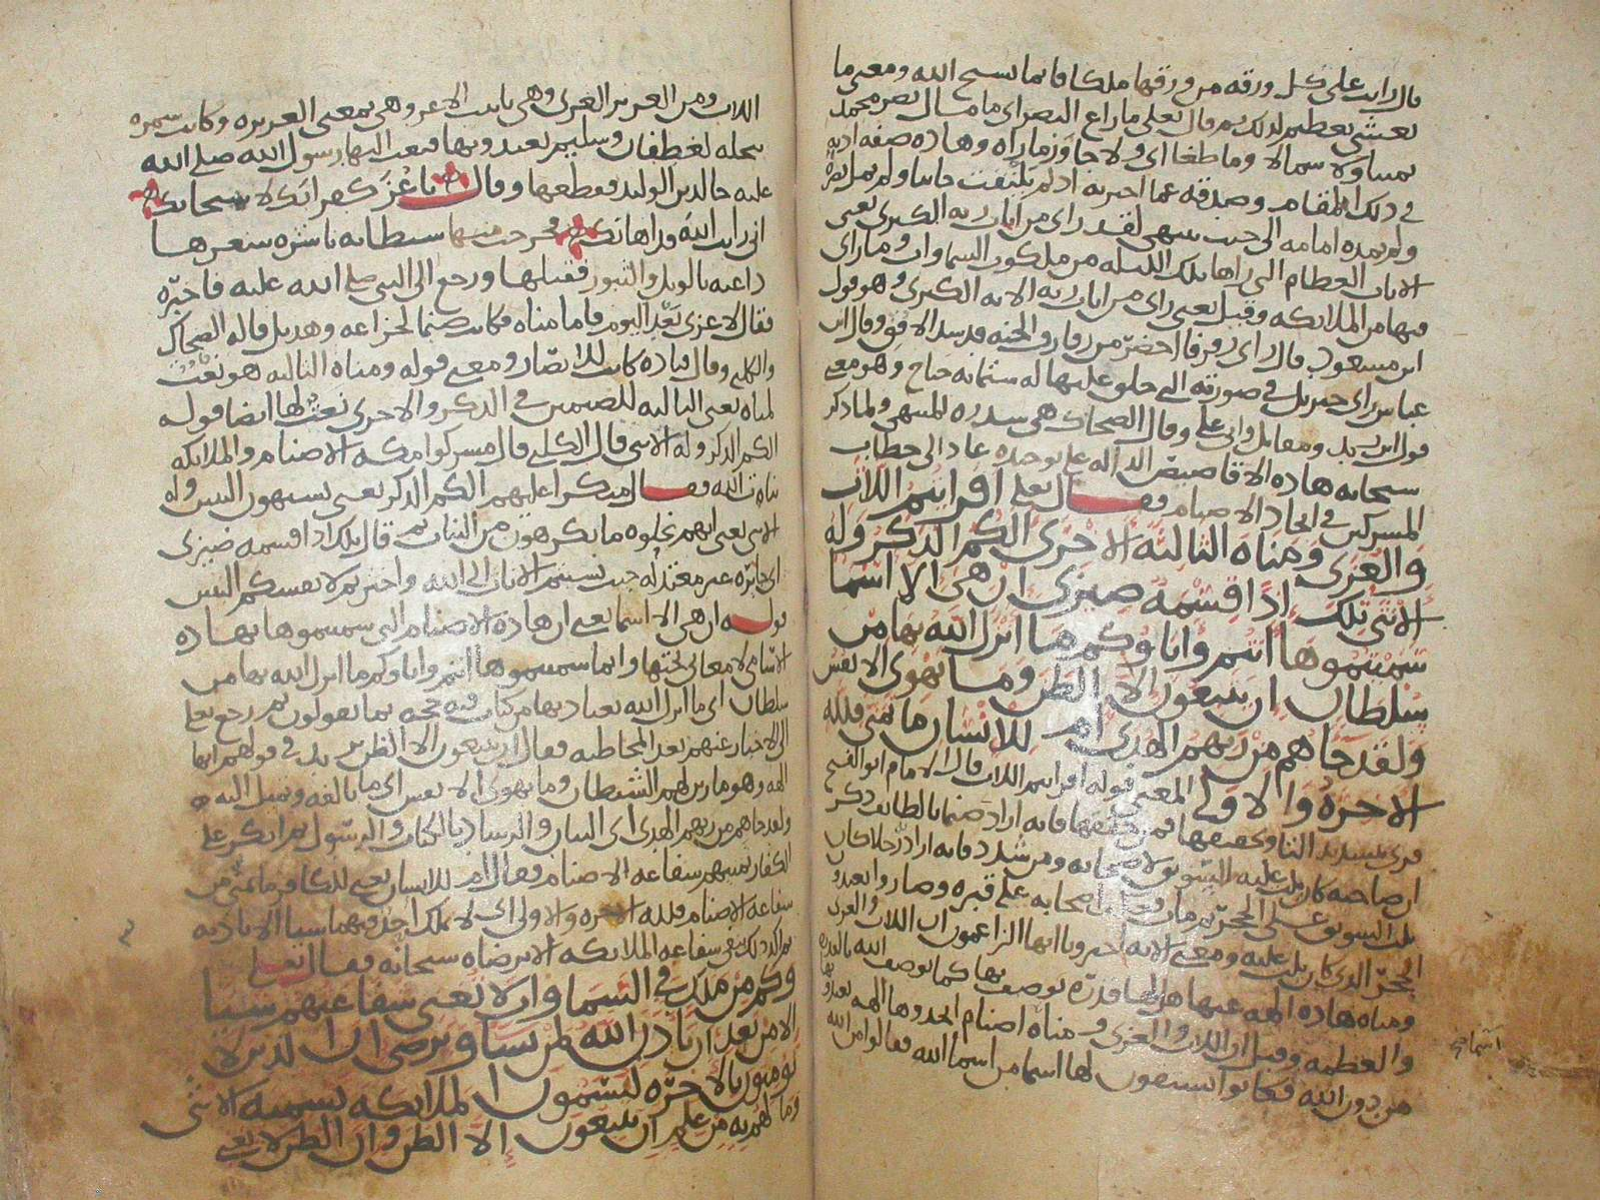 قال رايت على كل ورقه من ورقها ملكا قايما يسبح الله ومعنى ما
يغشى تعظيم لذلك ثم قال تعلى ما زاع البصر اى ما مال بصر محمد
يمينا ولا شمالا وما طغا اى ولا جاوز ما راه وهاده صفه ادبه
فى ذلك المقام وصدقه عما اخبر به اذ لم يلتفت جانبا ولم يمل بصره
ولم يمده امامه الى حيث ينتهى لقد راى من ايات ربه الكبرى يعنى
الايات العظام التى راها تلك الليله من ملكوت السماوات وما راى
فيها من الملايكه وقيل يعنى راى من ايات ربه الايه الكبرى وهو قول
ابن مسعود قال راى رفرفا اخضر من رفارف الجنه قد سد الافق وقال ابن
عباس راى جبريل فى صورته التى خلق عليها له ستمايه جناح وهو معنى
قول ابن زيد ومقاتل وابى على وقال الضحاك هى سدره المنتهى ولما ذكر
سبحانه هاده الاقاصيص الداله على توحده عاد الى خطاب
المشركين فى اتخاذ الاصنام فقال تعلى افرايتم اللات
والعزى ومناه الثالثه الاخرى الكم الذكر وله
الانثى تلك اذا قسمه ضيزى ان هى الا اسما
سميتموها انتم واباوكم ما انزل الله بها من
سلطان ان يتبعون الا الظن وما تهوى الانفس
ولقد جاهم من ربهم الهدى ام للانسان ما تمنى فلله
الاخره والاولى المعنى قوله افرايتم اللات قال الامام ابو الفتح
قرى بتشديد التا وتخفيفها فمن خففها فانه اراد صنما بالطايف ذكر
ان صاحبه كان يلت عليه السويق لاصحابه ومن شدد فانه اراد رجلا كان
يلت السويق على الحجر ثم مات اصحابه على قبره وصاروا يعبدون
الحجر الذى كان يلت عليه ومعنى الايه اخبرونا ايها الزاعمون ان اللات والعزى
ومناه هاده الهه عبدتها هل لها قدره توصف بها كما يوصف الله بالقدره
والعظمه وقيل ان اللات والعزى ومناه اصنام اتخذوها الهه يعبدونها
من دون الله فكانوا يشتقون لها اسما من اسما الله فقالوا من الله
اللات ومن العزيز العزى وهى تانيث الاعز وهى بمعنى العزيزه وكانت سمره
بنخله لغطفان وسليم يعبدونها فبعث اليها رسول الله صلى الله
عليه خالد بن الوليد فقطعها وقال يا عز كفرانك لا سبحانك
انى رايت الله قد اهانك فخرجت منها شيطانه ناشره شعرها
داعيه بالويل والثبور فقتلها ورجع الى النبى صلى الله عليه فاخبره
فقال لا عزى بعد اليوم فاما مناه فكانت صنما لخزاعه وهذيل قاله الضحاك
والكلبى وقال قتاده كانت للانصار ومعنى قوله ومناه الثالثه هو نعت
لمناه يعنى الثالثه للصنمين فى الذكر والاخرى نعت لها ايضا قوله
الكم الذكر وله الانثى قال الكلبى قال مشركوا مكه الاصنام والملايكه
بنات الله فقال منكرا عليهم الكم الذكر يعنى تشتهون البنين وله
الانثى يعنى انهم نحلوه ما يكرهون من البنات ثم قال تلك اذا قسمه ضيزى
اى جايره غير معتدله حيث نسبتم الاناث الى الله واخترتم لانفسكم البنين
قوله ان هى الا اسما يعنى ان هاده الاصنام التى سميتموها بهاده
الاسامى لا معانى تحتها وانما سميتموها انتم واباوكم ما انزل الله بها من
سلطان اى ما انزل الله بعبادتها من كتاب فيه حجه بما تقولون ثم رجع تعلى
الى الاخبار عنهم بعد المخاطبه فقال ان يتبعون الا الظن فى قولهم انها
الهه وهو ما زين لهم الشيطان وما تهوى الانفس اى ما تالفه وتميل اليه
ولقد جاهم من ربهم الهدى اى البيان والرشاد بالكتاب والرسول ثم انكر على
الكفار تمنيهم شفاعه الاصنام فقال ام للانسان يعنى للكافر ما تمنى من
شفاعه الاصنام فلله الاخره والاولى اى لا يملك احد فيهما شيا الا باذنه
ثم اكد ذلك بنفى شفاعه الملايكه الا برضاه سبحانه فقال تعلى
وكم من ملك فى السماوات لا تغنى شفاعتهم شيا
الا من بعد ان ياذن الله لمن يشا ويرضى ان الذين لا
يومنون بالاخره ليسمون الملايكه تسميه الانثى
وما لهم به من علم ان يتبعون الا الظن وان الظن لا يغنى
اسامى